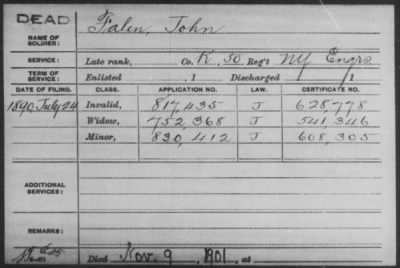 DEAD
NAME OF SOLDIER: Falen, John
SERVICE: Late rank, Co. K, 50 Reg't NY Engrs
TERM OF SERVICE: Enlisted , 1 Discharged , 1
DATE OF FILING. CLASS. APPLICATION NO. LAW. CERTIFICATE NO.
1890 July 24 Invalid, 817,435 J 628,778
Widow, 752,368 J 541,346
Minor, 830,412 J 608,305
ADDITIONAL SERVICES:
REMARKS:
Died Nov. 9, 1901, at